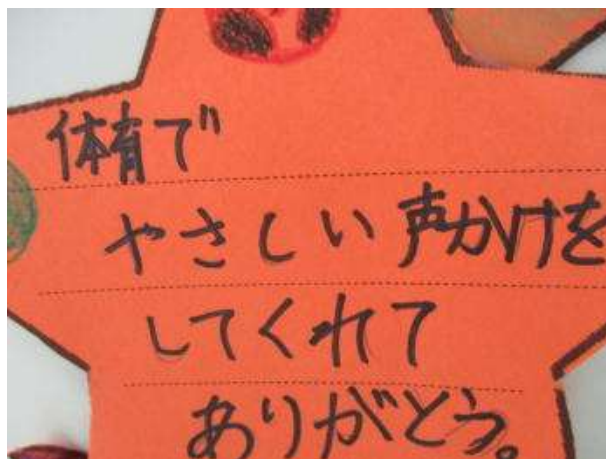 体育で
やさしい声かけを
してくれて
ありがとう。